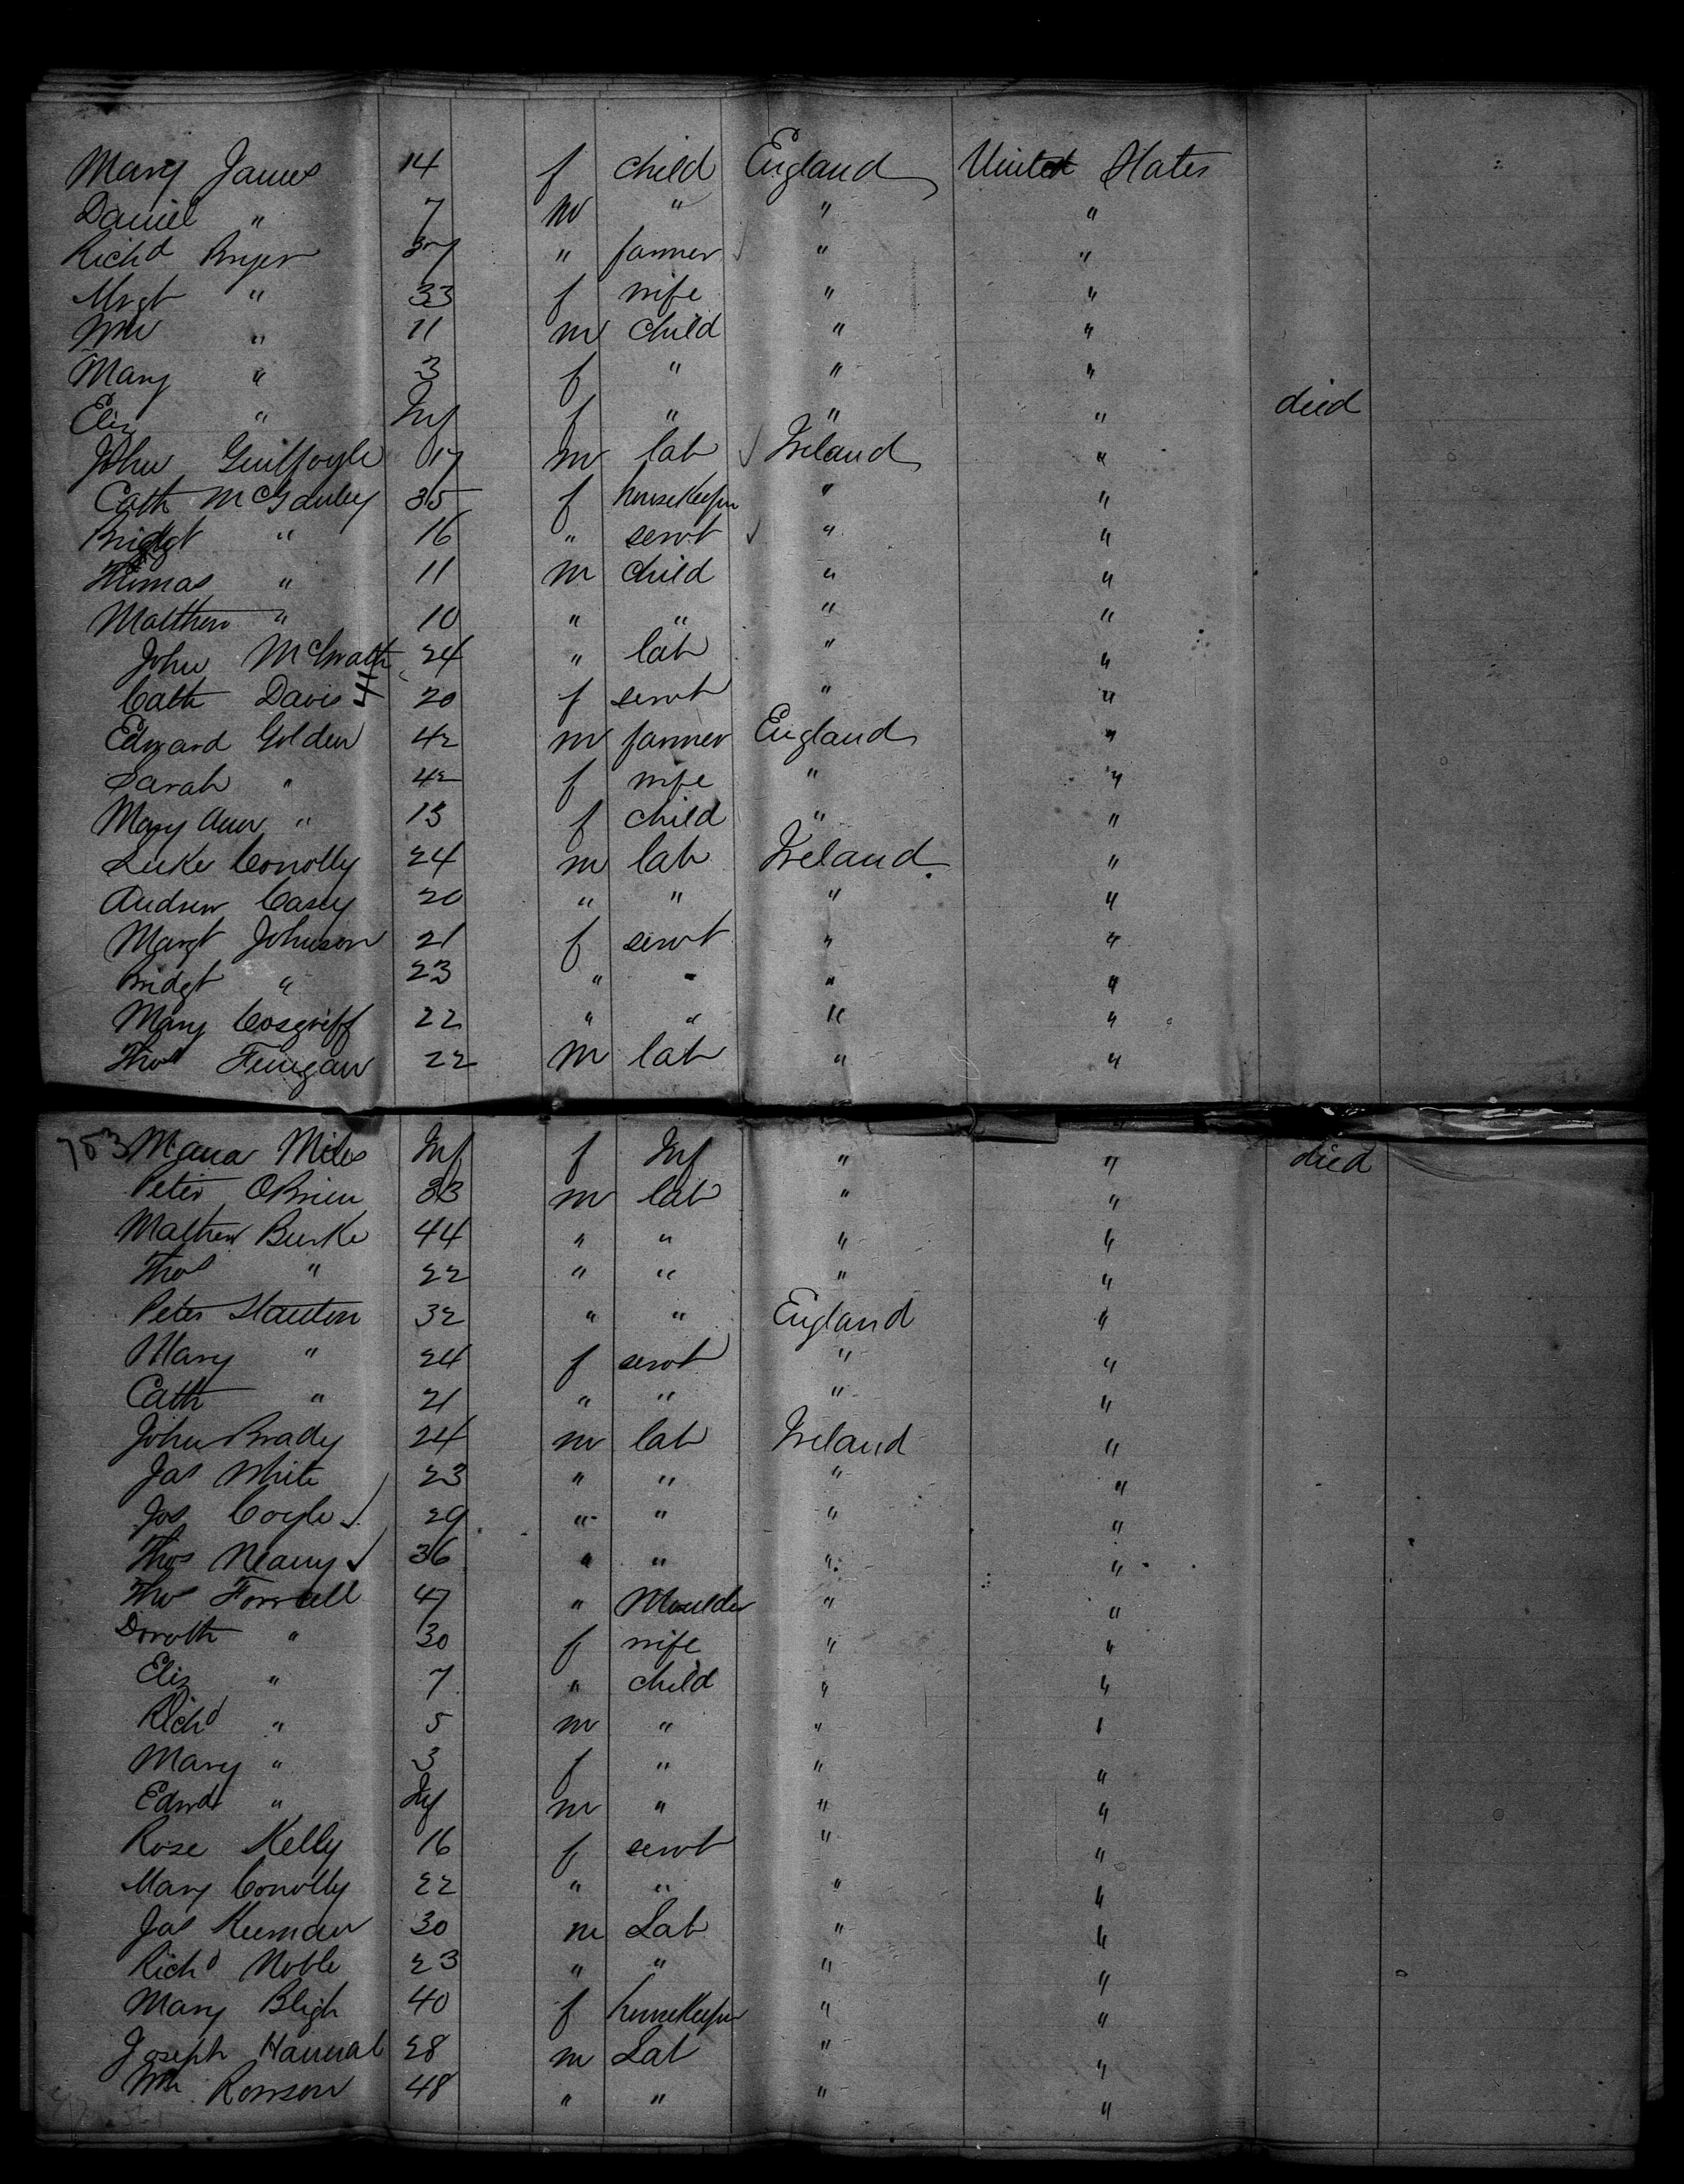 Mary James 14 f child England United States
Daniel " 7 m " " "
Richd Bryer 37 " farmer " "
Mrgt " 33 f wife " "
Wm " 11 m child " "
Mary " 3 f " " "
Eliz " Inf f " " " died
John Guilfoyle 17 m lab Ireland "
Cath McGauley 35 f housekeeper " "
Bridgt " 16 " servt " "
Thomas " 11 m child " "
Matthew " 10 " " " "
John McGrath 24 " lab " "
Cath Davis 20 f servt " "
Edward Golden 42 m farmer England "
Sarah " 42 f wife " "
Mary Ann " 13 f child " "
Luke Conolly 24 m lab Ireland "
Andrew Casey 20 " " " "
Margt Johnson 21 f servt " "
Bridgt " 23 " " " "
Mary Cosgriff 22 " " " "
Thos Finegan 22 m lab " "
753 Maria Miles Inf f Inf " " died
Peter OBrien 33 m lab " "
Mathew Burke 44 " " " "
Thos " 22 " " " "
Peter Stanton 32 " " England "
Mary " 24 f servt " "
Cath " 21 " " " "
John Brady 24 m lab Ireland "
Jas White 23 " " " "
Jos Coyle 29 " " " "
Thos Neary 36 " " " "
Thos Farrell 47 " Moulder " "
Doroth " 30 f wife " "
Eliz " 7 " child " "
Richd " 5 m " " "
Mary " 3 f " " "
Edwd " Inf m " " "
Rose Kelly 16 f servt " "
Mary Conolly 22 " " " "
Jas Keernan 30 m Lab " "
Richd Noble 23 " " " "
Mary Bligh 40 f housekeeper " "
Joseph Hannat 28 m Lab " "
Wm Rowson 48 " " " "